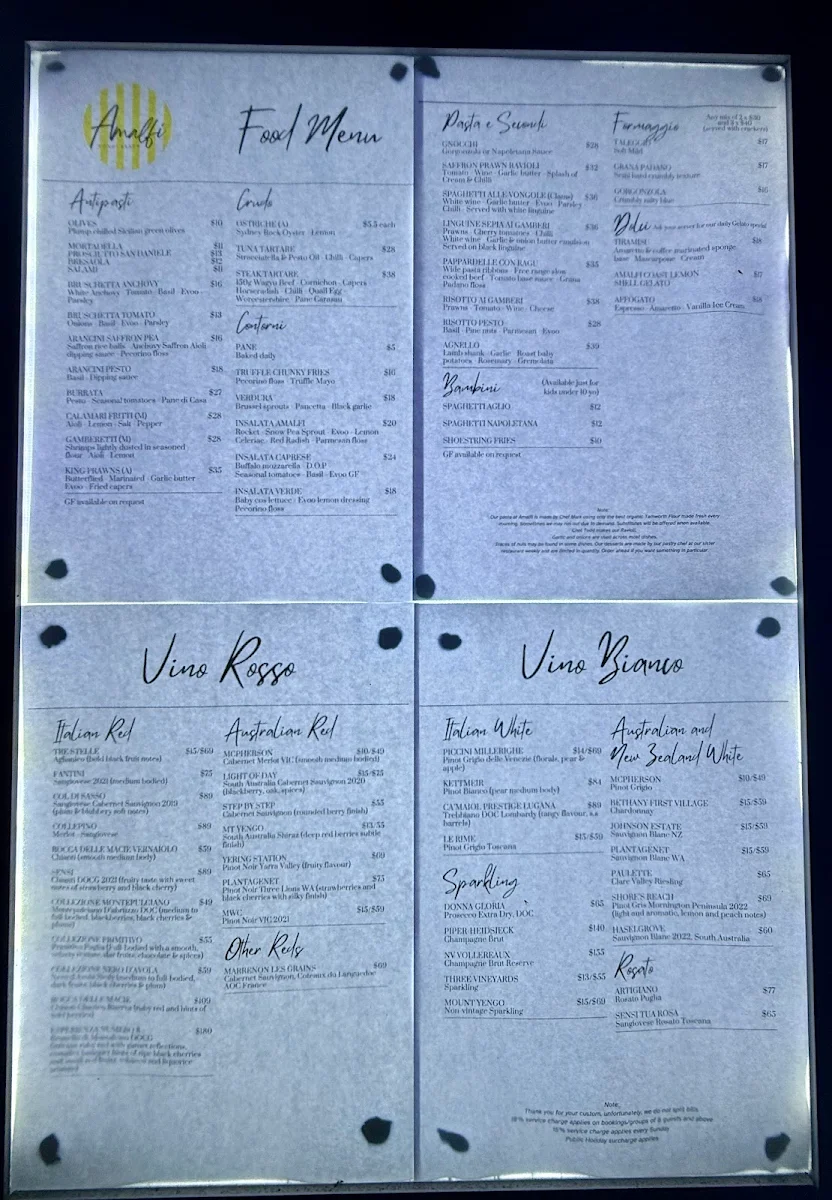 Amalfi
Food Menu
Antipasti
OLIVES $10
Plump chilled Sicilian green olives
MORTADELLA $11
PROSCIUTTO SAN DANIELE $13
BRESAOLA $12
SALAMI $11
BRUSCHETTA ANCHOVY $16
White Anchovy · Tomato · Basil · Evoo ·
Parsley
BRUSCHETTA TOMATO $13
Onions · Basil · Evoo · Parsley
ARANCINI SAFFRON PEA $16
Saffron rice balls · Anchovy Saffron Aioli
dipping sauce · Pecorino floss
ARANCINI PESTO $18
Basil · Dipping sauce
BURRATA $27
Pesto · Seasonal tomatoes · Pane di Casa
CALAMARI FRITTI (M) $28
Aioli · Lemon · Salt · Pepper
GAMBERETTI (M) $28
Shrimps lightly dusted in seasoned
flour · Aioli · Lemon
KING PRAWNS (A) $35
Butterflied · Marinated · Garlic butter
Evoo · Fried capers
GF available on request
Crudo
OSTRICHE (A) $5.5 each
Sydney Rock Oyster · Lemon
TUNA TARTARE $28
Stracciatella & Pesto Oil · Chilli · Capers
STEAK TARTARE $38
150g Wagyu Beef · Cornichon · Capers
Horseradish · Chilli · Quail Egg ·
Worcestershire · Pane Carasau
Contorni
PANE $5
Baked daily
TRUFFLE CHUNKY FRIES $16
Pecorino floss · Truffle Mayo
VERDURA $18
Brussel sprouts · Pancetta · Black garlic
INSALATA AMALFI $20
Rocket · Snow Pea Sprout · Evoo · Lemon
Celeriac · Red Radish · Parmesan floss
INSALATA CAPRESE $24
Buffalo mozzarella · D.O.P
Seasonal tomatoes · Basil · Evoo GF
INSALATA VERDE $18
Baby cos lettuce · Evoo lemon dressing
Pecorino floss
Pasta e Secondi
GNOCCHI $28
Gorgonzola or Napoletana Sauce
SAFFRON PRAWN RAVIOLI $32
Tomato · Wine · Garlic butter · Splash of
Cream & Chilli
SPAGHETTI ALLE VONGOLE (Clams) $36
White wine · Garlic butter · Evoo · Parsley
Chilli · Served with white linguine
LINGUINE SEPIA AI GAMBERI $36
Prawns · Cherry tomatoes · Chilli
White wine · Garlic & onion butter emulsion
Served on black linguine
PAPPARDELLE CON RAGU $35
Wide pasta ribbons · Free range slow
cooked beef · Tomato base sauce · Grana
Padano floss
RISOTTO AI GAMBERI $38
Prawns · Tomato · Wine · Cheese
RISOTTO PESTO $28
Basil · Pine nuts · Parmesan · Evoo
AGNELLO $39
Lamb shank · Garlic · Roast baby
potatoes · Rosemary · Gremolata
Bambini (Available just for
kids under 10 yo)
SPAGHETTI AGLIO $12
SPAGHETTI NAPOLETANA $12
SHOESTRING FRIES $10
GF available on request
Formaggio
Any mix of 2 x $30
and 3 x $40
(served with crackers)
TALEGGIO $17
Soft Mild
GRANA PADANO $17
Semi hard crumbly texture
GORGONZOLA $16
Crumbly salty blue
Dolci Ask your server for our daily Gelato special
TIRAMISU $18
Amaretto & coffee marinated sponge
base · Mascarpone · Cream
AMALFI COAST LEMON $17
SHELL GELATO
AFFOGATO $18
Espresso · Amaretto · Vanilla Ice Cream
Note:
Our pasta at Amalfi is made by Chef Mark using only the best organic Tamworth Flour made fresh every
morning. Sometimes we may run out due to demand. Substitutes will be offered when available.
Chef Todd makes our Ravioli.
Garlic and onions are main across most dishes.
Traces of nuts may be found in some dishes. Our desserts are made by our pastry chef at our sister
restaurant weekly and are limited in quantity. Order ahead if you want something in particular
Vino Rosso
Italian Red
TRE STELLE $15/$69
Aglianico (bold black fruit notes)
FANTINI $75
Sangiovese 2021 (medium bodied)
COL DI SASSO $80
Sangiovese Cabernet Sauvignon 2019
(plum & blubbery soft notes)
COLLEPINO $89
Merlot · Sangiovese
ROCCA DELLE MACIE VERNAIOLO $59
Chianti (smooth medium body)
SENSI $89
Chianti DOCG 2021 (fruity taste with sweet
notes of strawberry and black cherry)
COLLEZIONE MONTEPULCIANO $49
Montepulciano D'abruzzo DOC (medium to
full bodied, blackberries, black cherries &
plums)
COLLEZIONE PRIMITIVO $55
Primitivo Puglia (Full bodied with a smooth,
velvety texture, dar fruits, chocolate & spices)
COLLEZIONE NERO D'AVOLA $59
(medium to full bodied,
dark fruits, black cherries & plum)
ROCCA DELLE MACIE $109
Chianti Classico Riserva (ruby red and hints of
$180
Australian Red
MCPHERSON $10/$49
Cabernet Merlot VIC (smooth medium bodied)
LIGHT OF DAY $15/$75
South Australia Cabernet Sauvignon 2020
(blackberry, oak, spices)
STEP BY STEP $55
Cabernet Sauvignon (rounded berry finish)
MT YENGO $13/55
South Australia Shiraz (deep red berries subtle
finish)
YERING STATION $69
Pinot Noir Yarra Valley (fruity flavour)
PLANTAGENET $75
Pinot Noir Three Lions WA (strawberries and
black cherries with silky finish)
MWC $15/$59
Pinot Noir VIC 2021
Other Reds
MARRENON LES GRAINS $69
Cabernet Sauvignon, Coteaux du Languedoc
AOC France
Vino Bianco
Italian White
PICCINI MILLERIGHE $14/$69
Pinot Grigio delle Venezie (florals, pear &
apple)
KETTMEIR $84
Pinot Bianco (pear medium body)
CA'MAIOL PRESTIGE LUGANA $89
Trebbiano DOC Lombardy (tangy flavour, s.s
barrels)
LE RIME $15/$59
Pinot Grigio Toscana
Sparkling
DONNA GLORIA $65
Prosecco Extra Dry, DOC
PIPER-HEIDSIECK $140
Champagne Brut
NV VOLLEREAUX $155
Champagne Brut Reserve
THREE VINEYARDS $13/$55
Sparkling
MOUNT YENGO $15/$69
Non-vintage Sparkling
Australian and
New Zealand White
MCPHERSON $10/$49
Pinot Grigio
BETHANY FIRST VILLAGE $15/$59
Chardonnay
JOHNSON ESTATE $15/$59
Sauvignon Blanc NZ
PLANTAGENET $15/$59
Sauvignon Blanc WA
PAULETTE $65
Clare Valley Riesling
SHORE'S REACH $69
Pinot Gris Mornington Peninsula 2022
(light and aromatic, lemon and peach notes)
HASELGROVE $60
Sauvignon Blanc 2022, South Australia
Rosato
ARTIGIANO $77
Rosato Puglia
SENSI TUA ROSA $65
Sangiovese Rosato Toscana
Note:
Thank you for your custom, unfortunately, we do not split bills.
10% service charge applies on bookings/groups of 8 guests and above
10% service charge applies every Sunday
Public Holiday surcharge applies